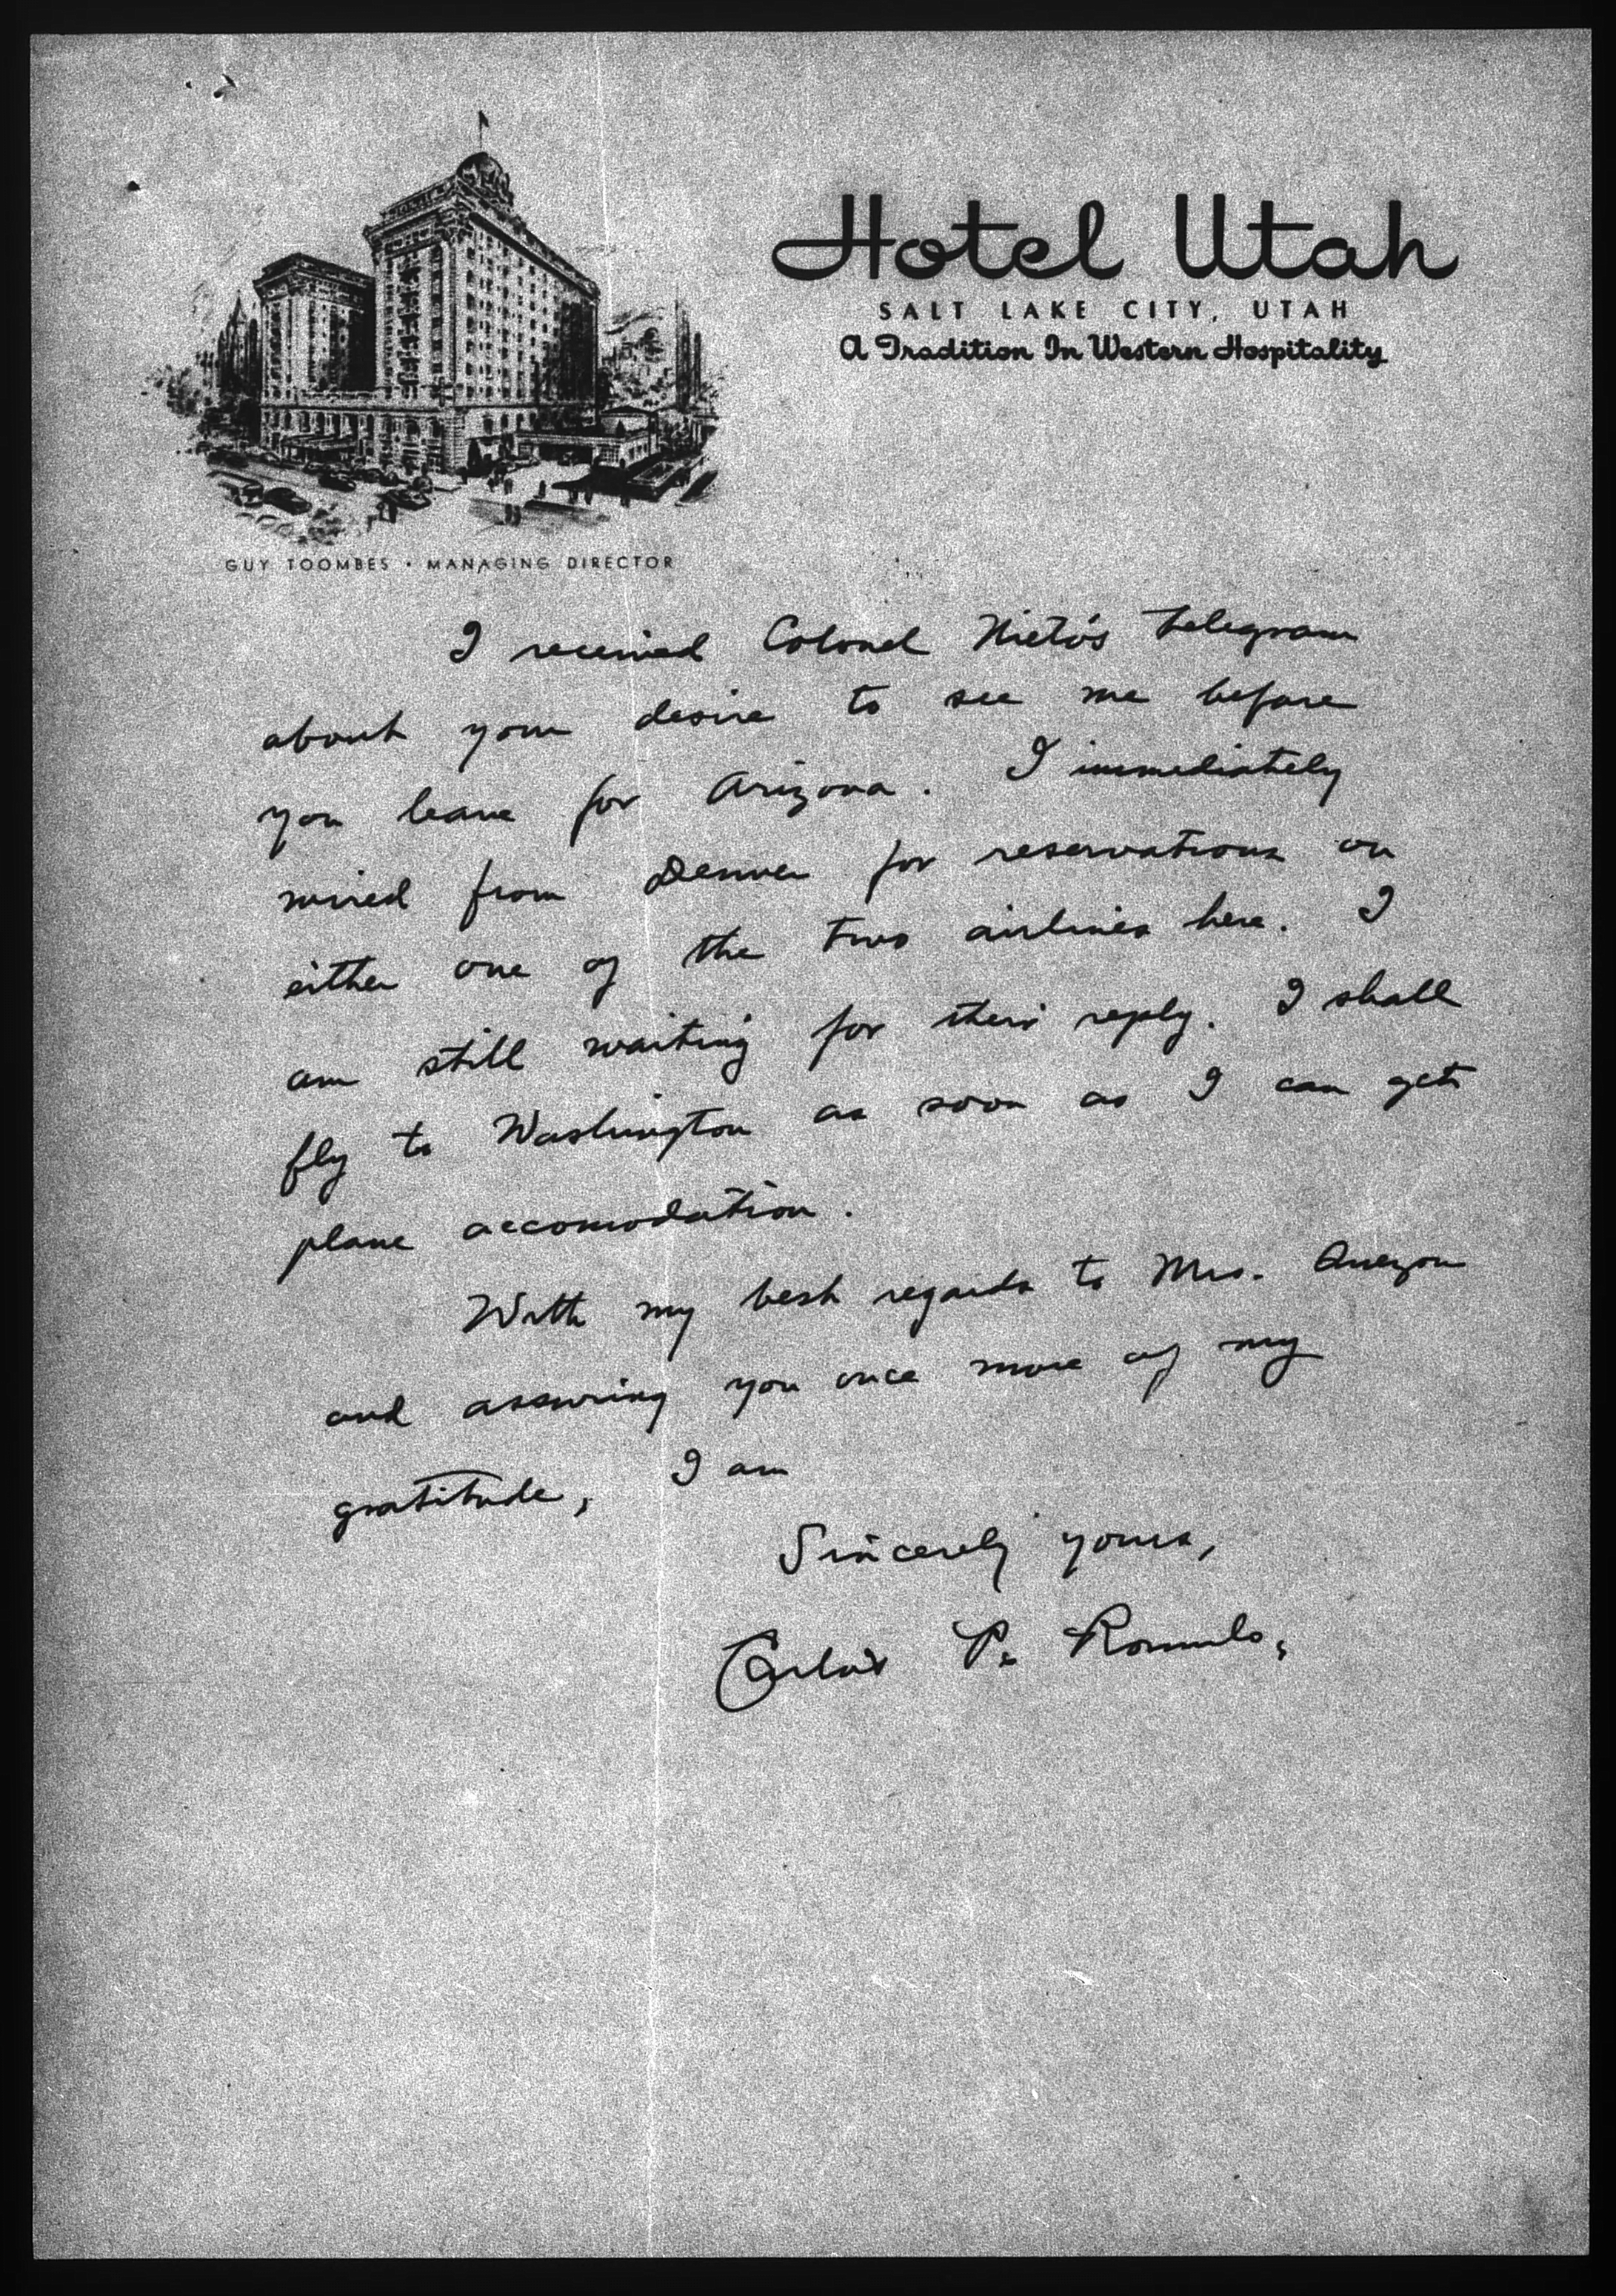 Hotel Utah
SALT LAKE CITY, UTAH
A Tradition In Western Hospitality
GUY TOOMBES • MANAGING DIRECTOR
I received Colonel Nieto's telegram
about your desire to see me before
you leave for Arizona. I immediately
wired from Denver for reservations on
either one of the two airlines here. I
am still waiting for their reply. I shall
fly to Washington as soon as I can get
plane accomodation.
With my best regards to Mrs. Quezon
and assuring you once more of my
gratitude, I am
Sincerely yours,
Carlos P. Romulo.